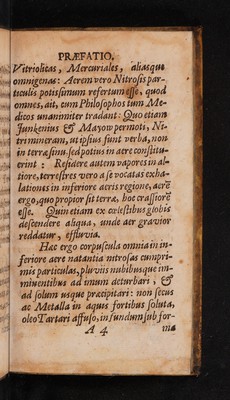 PRÆFATIO.
Vitriolicas, Mercuriales, aliasque
omnigenas: Aerem vero Nitrosis par-
ticulis potissimum refertum esse, quod
omnes, ait, cum Philosophos tum Me-
dicos unanimiter tradant: Quo etiam
Junkenius & Mayow pernots, Ni-
tri mineram, ut ipsius funt verba, non
in terræ sinu, sed potius in aere constitu-
erint: Residere autem vapores in al-
tiore, terrestres vero a se vocatas exha-
lationes in inferiore aeris regione, aerē
ergo, quo propior sit terræ, hoc crassiorē
esse. Quin etiam ex cœlestibus globis
descendere aliqua, unde aer gravior
reddatur, effluvia.
Hæc ergo corpuscula omnia in in-
feriore aere natantia nitrosas cumpri-
mis particulas, pluviis nubibusque im-
minentibus ad imum deturbari, &
ad solum usque præcipitari: non secus
ac Metalla in aquis fortibus soluta,
oleo Tartari affuso, in fundum sub for-
A 4 ma